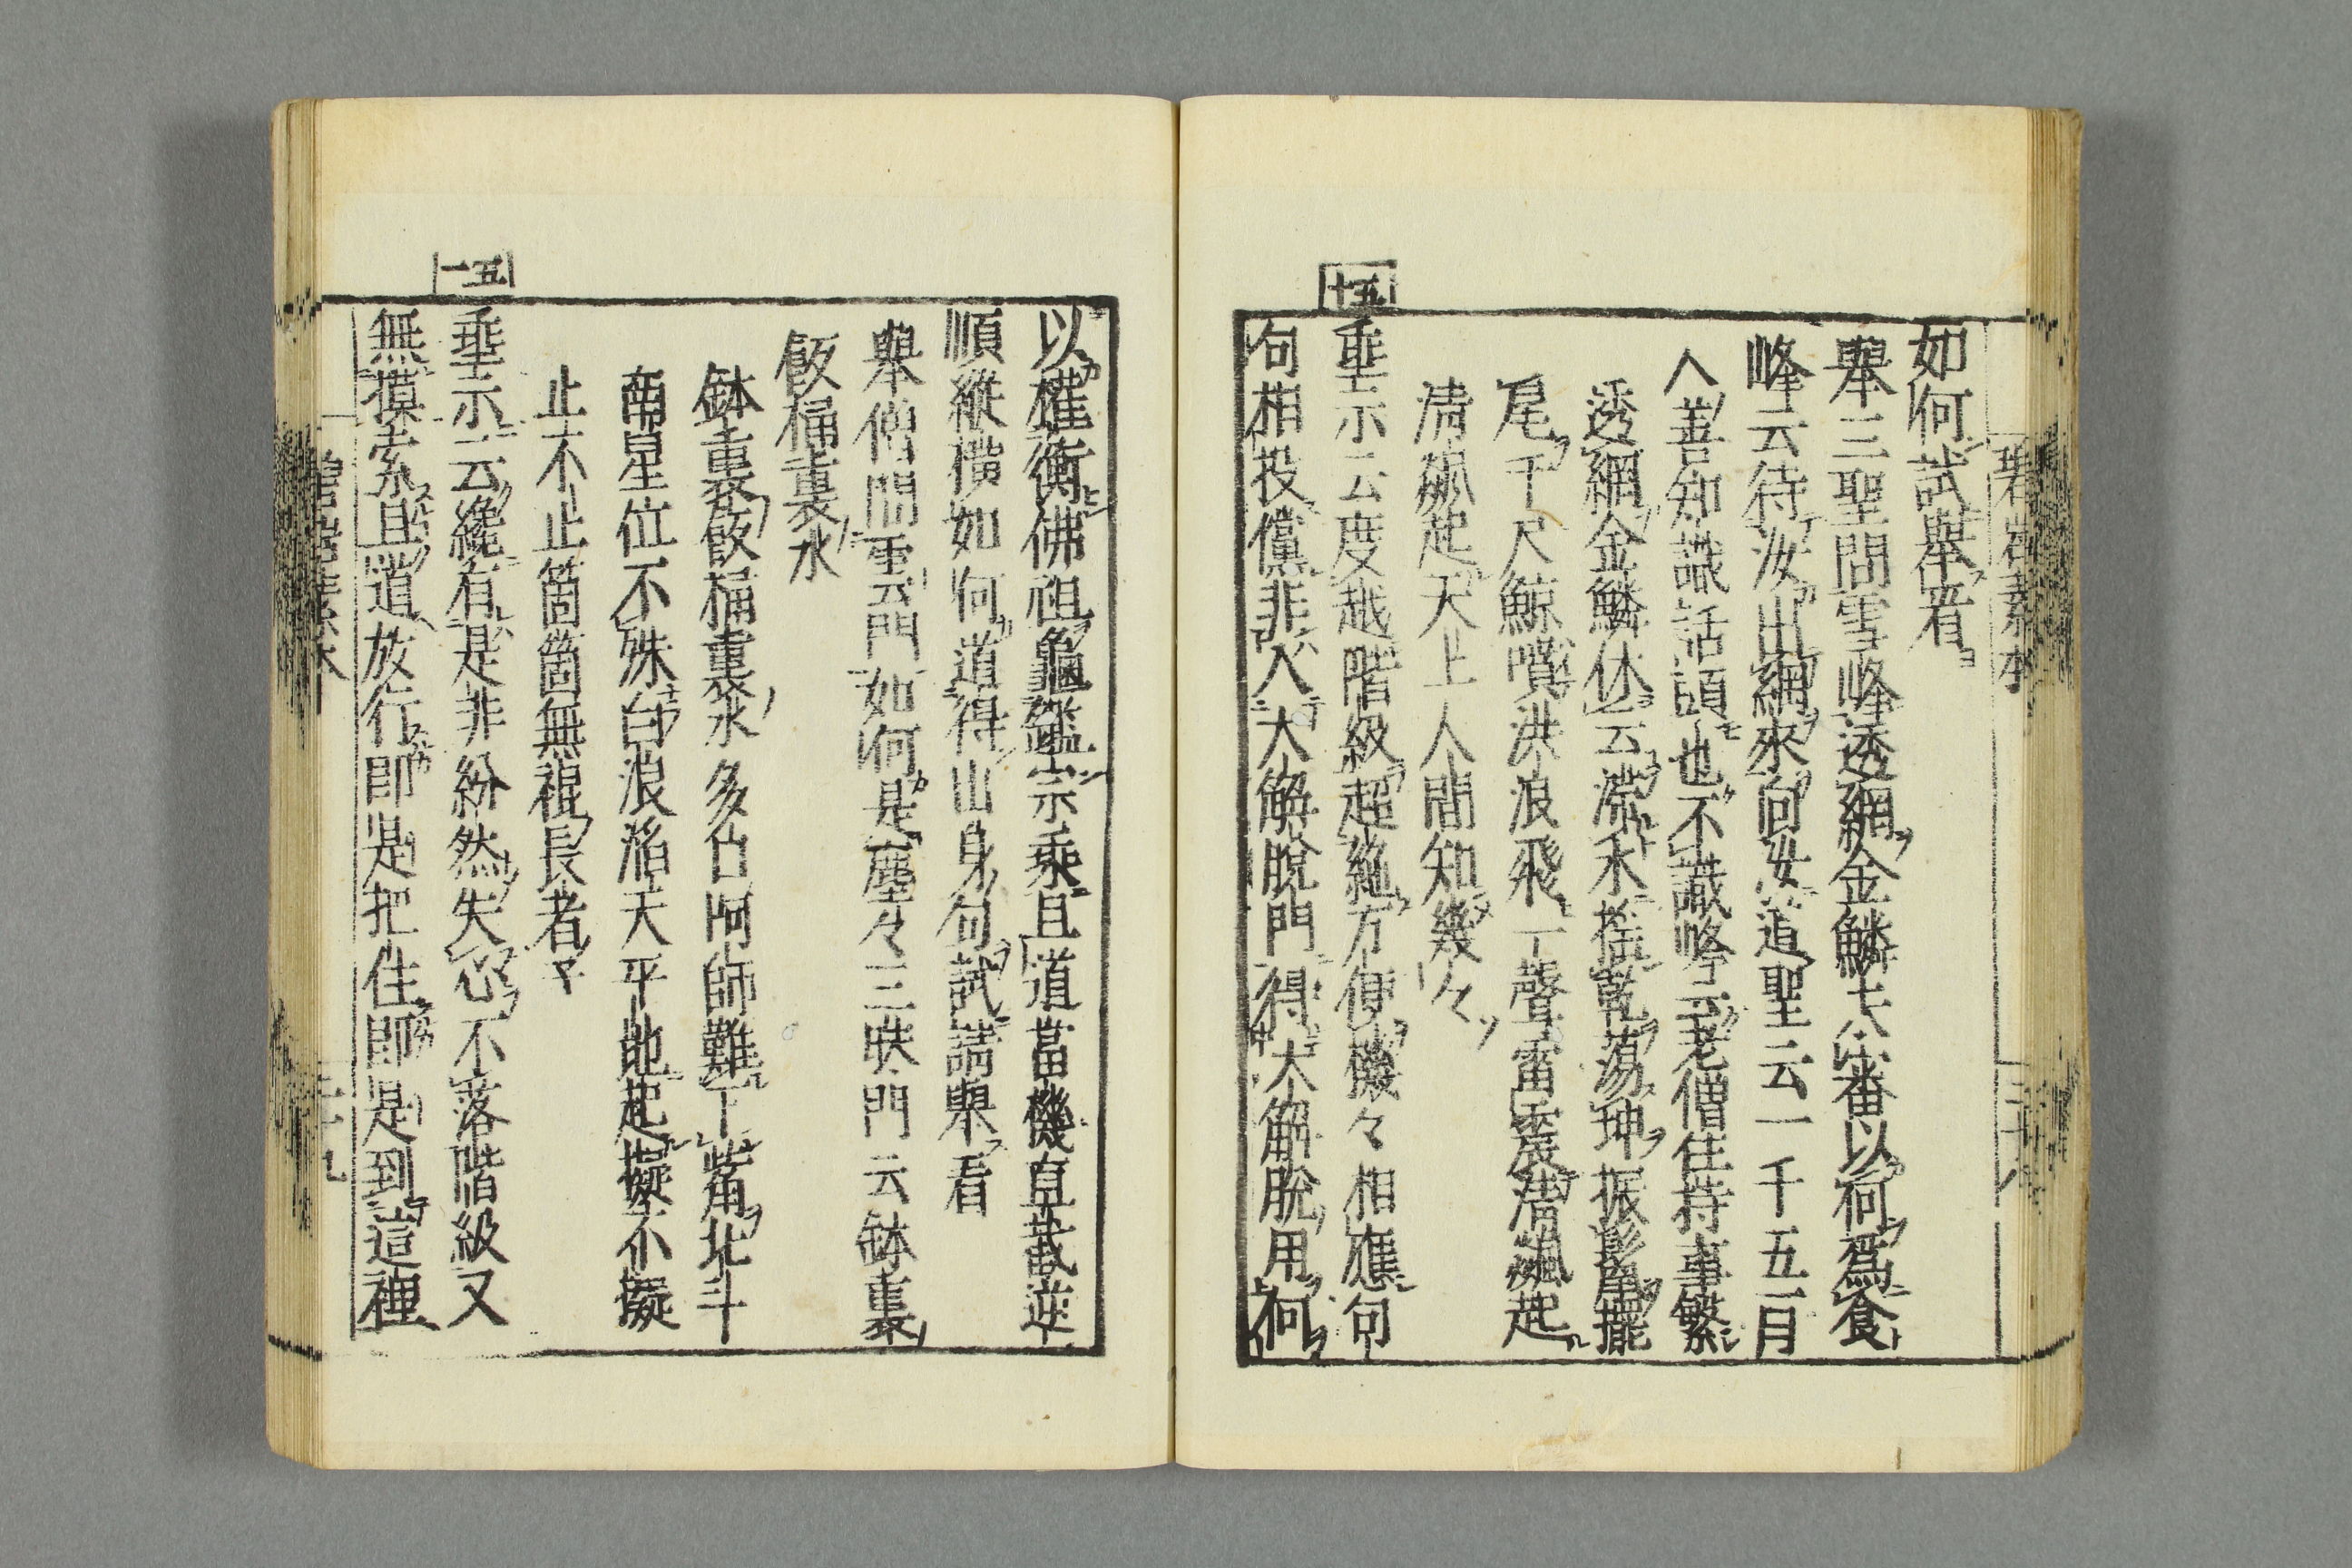 碧岩素本
三十八
如何試舉看
舉三聖問雪峰透網金鱗未審以何爲食
峰云待汝出網來向汝道聖云一千五百
人善知識話頭也不識峰云老僧住持事繁
透網金鱗休云滯水搖乾蕩坤振鬣擺
尾千尺鯨噴洪浪飛一聲雷震清飆起
清飆起天上人間知幾々
五十
垂示云度越階級超絕方便機々相應句
句相投儻非入大解脫門得大解脫用何
以權衡佛祖龜鑑宗乘且道當機直截逆
順縱橫如何道得出身句試請舉看
舉僧問雲門如何是塵々三昧門云鉢裏
飯桶裏水
鉢裏飯桶裏水多口阿師難下觜北斗
南星位不殊白浪滔天平地起擬不擬
止不止箇箇無裩長者子
五一
垂示云纔有是非紛然失心不落階級又
無摸索且道放行即是把住即是到這裡
三十九